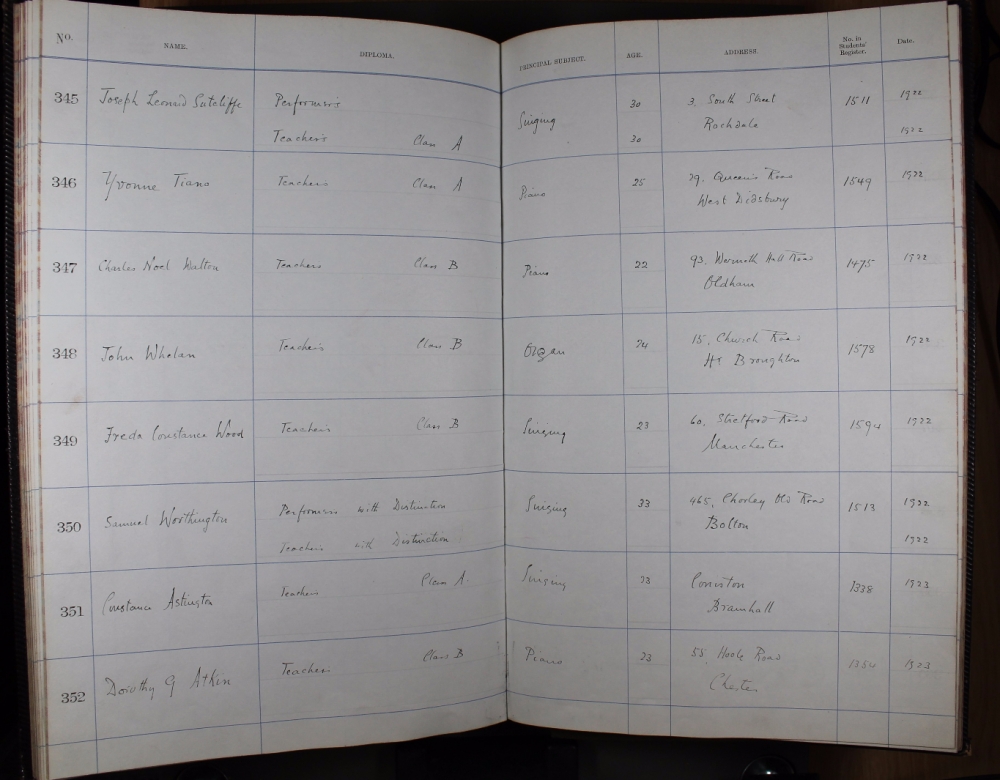 No. NAME. DIPLOMA. PRINCIPAL SUBJECT. AGE. ADDRESS. No. in Students' Register. Date.
345 Joseph Leonid Sutcliffe Performer's Singing 30 3. South Street 1511 1922
Teacher's Class A 30 Rochdale 1922
346 Yvonne Tiano Teacher's Class A Piano 25 29. Queen's Road 1549 1922
West Didsbury
347 Charles Noel Walton Teachers Class B Piano 22 93. Werneth Hall Road 1475 1922
Oldham
348 John Whelan Teacher's Class B Organ 24 15. Church Road 1578 1922
Hr Broughton
349 Freda Constance Wood Teacher's Class B Singing 23 60. Stretford Road 1594 1922
Manchester
350 Samuel Worthington Performers with Distinction Singing 33 465. Chorley Old Road 1513 1922
Teachers with Distinction Bolton 1922
351 Constance Astington Teachers Class A Singing 23 Coniston 1338 1923
Bramhall
352 Dorothy G Atkin Teachers Class B Piano 23 55. Hoole Road 1354 1923
Chester